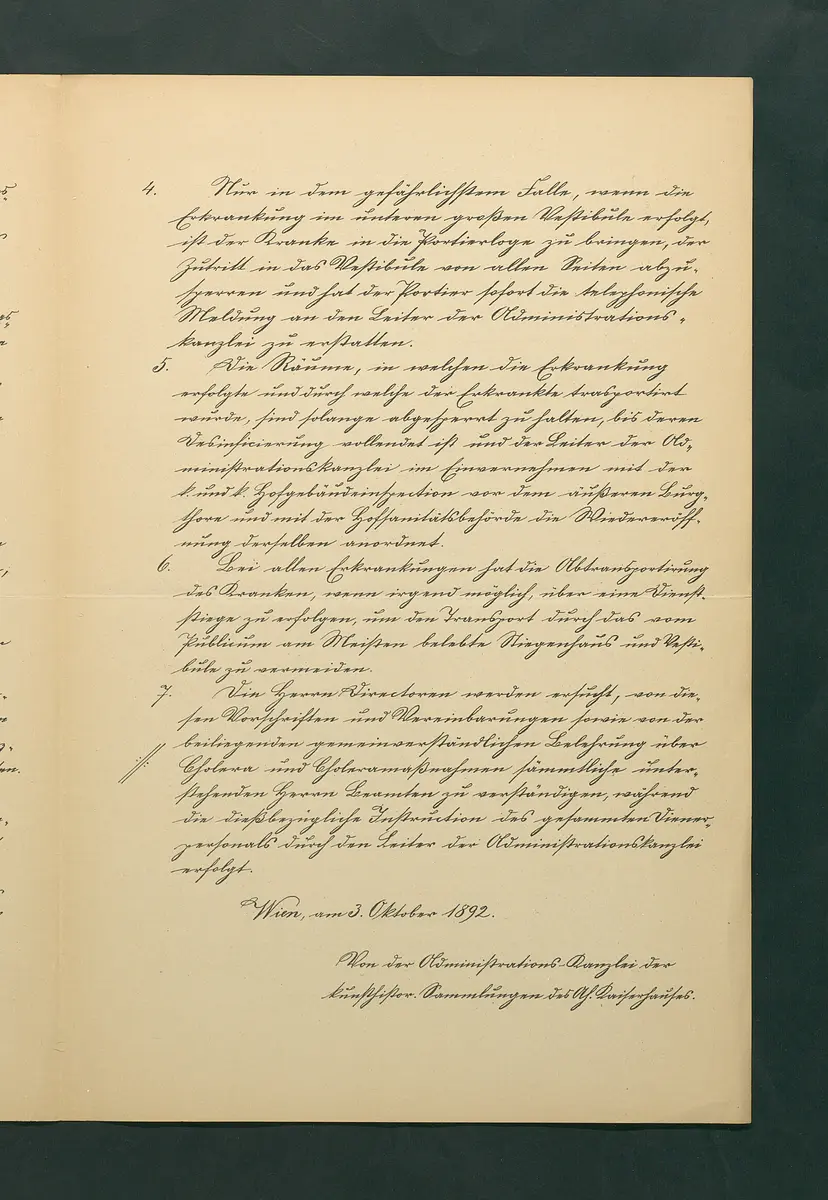 4. Nur in dem gefährlichstem Falle, wenn die
Erkrankung im unteren großen Vestibule erfolgt,
ist der Kranke in die Portierloge zu bringen, der
Zutritt in das Vestibule von allen Seiten abzu-
sperren und hat der Portier sofort die telephonische
Meldung an den Leiter der Administrations-
kanzlei zu erstatten.
5. Die Räume, in welchen die Erkrankung
erfolgte und durch welche der Erkrankte trasportirt
wurde, sind solange abgesperrt zu halten, bis deren
Desinficierung vollendet ist und der Leiter der Ad-
ministrationskanzlei im Einvernehmen mit der
k. und k. Hofgebäudeinspection vor dem äußeren Burg-
thore und mit der Hofsanitätsbehörde die Wiedereröff-
nung derselben anordnet.
6. Bei allen Erkrankungen hat die Abtransportirung
des Kranken, wenn irgend möglich, über eine Dienst-
stiege zu erfolgen, um den Transport durch das vom
Publicum am Meisten belebte Stiegenhaus und Vesti-
bule zu vermeiden.
7. Die Herrn Directoren werden ersucht, von die-
sen Vorschriften und Vereinbarungen sowie von der
beiliegenden gemeinverständlichen Belehrung über
Cholera und Choleramaßnahmen sämmtliche unter-
stehenden Herrn Beamten zu verständigen, während
die dießbezügliche Instruction des gesammten Diener-
personals durch den Leiter der Administrationskanzlei
erfolgt.
Wien, am 3. Oktober 1892.
Von der Administrations-Kanzlei der
kunsthistor. Sammlungen des Ah. Kaiserhauses.